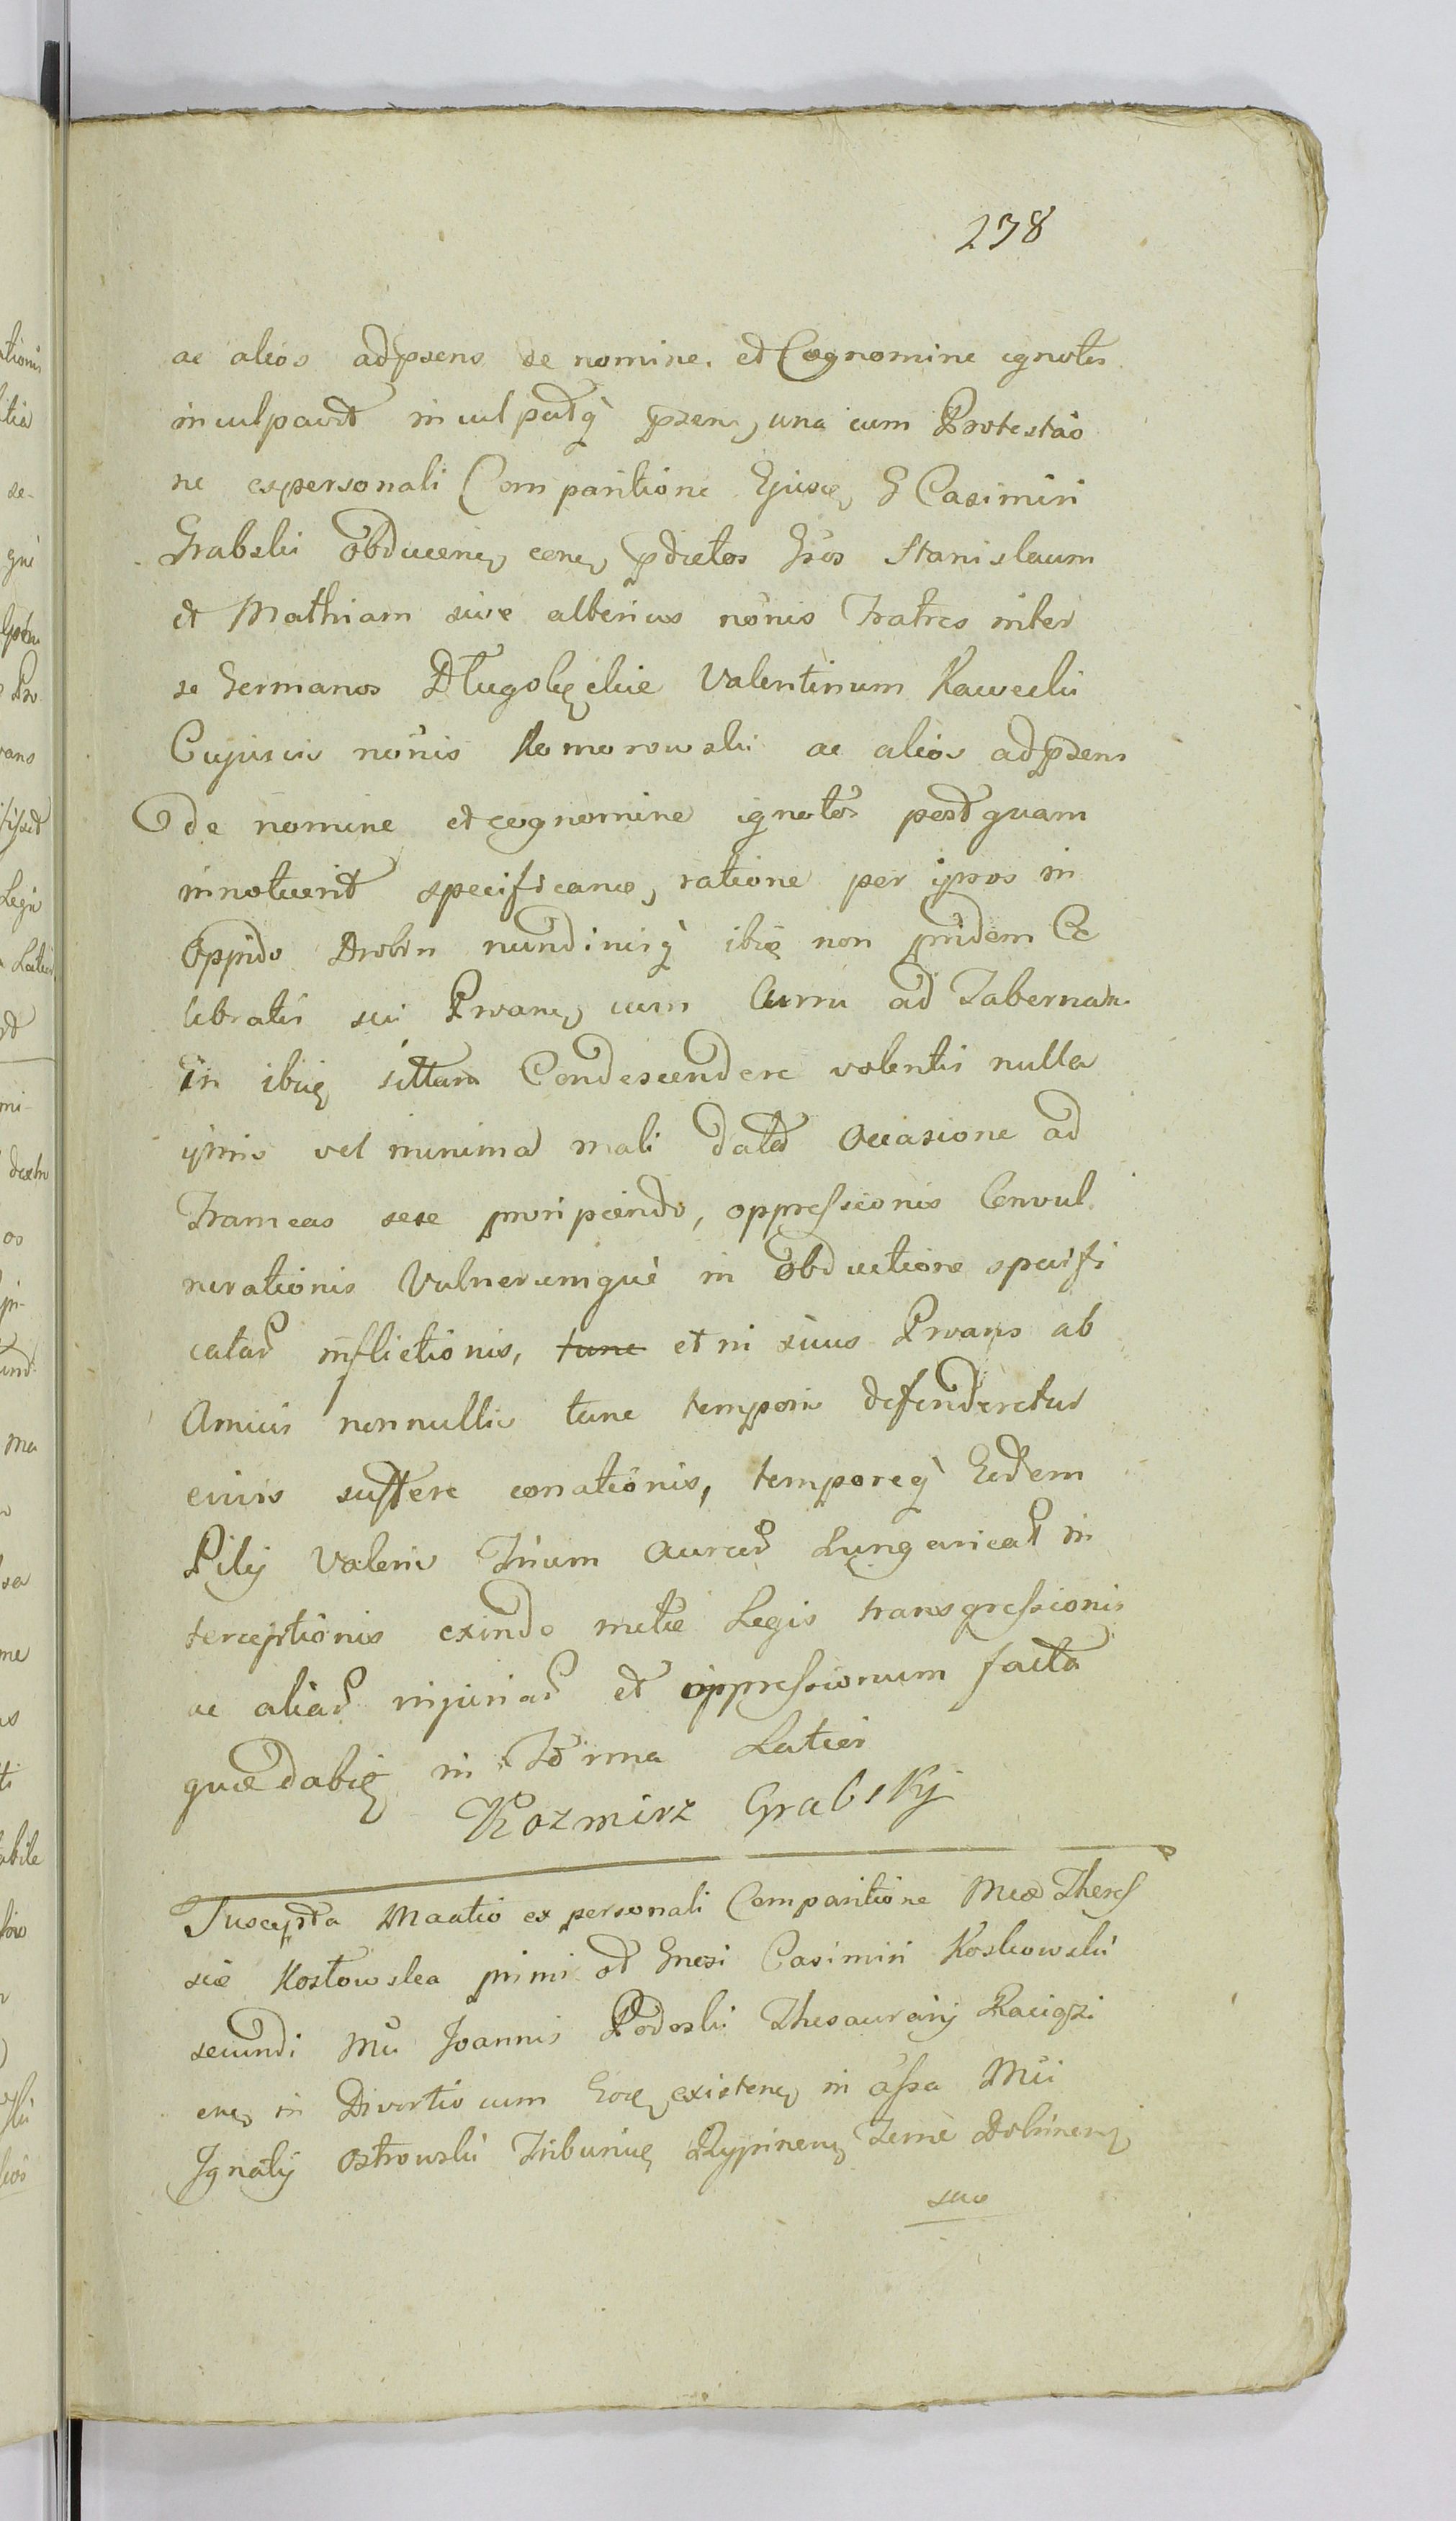 238
ac alios adpraens de nomine et Cognomine ignotos
inculpavit inculpatq praen, una cum Protestao
ne expersonali Comparitione Ejusd G Casimiri
Grabski obducen, con, pdictos Gsos Stanislaum
et Mathiam sive alterius nonis Fratres inter
se Germanos Długołęckie Valentinum Kawecki
Cujusvis nonis Komorowski ac alios adpraens
de nomine et cognomine ignotos postquam
innotuerit specificand, ratione per ipsos in
Oppido Drobin nundinisq ibid non pridem Ce
lebratis sui Prvane, cum Curru ad Tabernam
in ibid sittam Condescendere volentis nulla
ipsius vel minima mali data Occasione ad
Frameas sese proripiendo, oppressionis Convul
nerationis Vulnerumque in obductione specifi
catar inflictionis, tunc et ni suus Prvans ab
Amicis nonnullis tunc temporis defenderetur
eius sufferre conationis, temporeq Eodem
Pilej Valeris Trium Aureor Hungarical in
terceptionis exinde metæ Legis transgressionis
ac aliar injuriar et oppressionum facta
quæ dabit in Forma Latiori
Kozmirz Grabskj
Suscepta Maatio ex personali Comparitione Mcæ Theres
siæ Kostowska primi ad Gnesi Casimiri Koskowski
secundi Mci Joannis Podoski Thesaurarij Raciązi
en, in Divortio cum Eod, existen, in assa Mci
Ignatij Ostrowski Tribunid Rypinen, Terræ Dobrinen,
suo